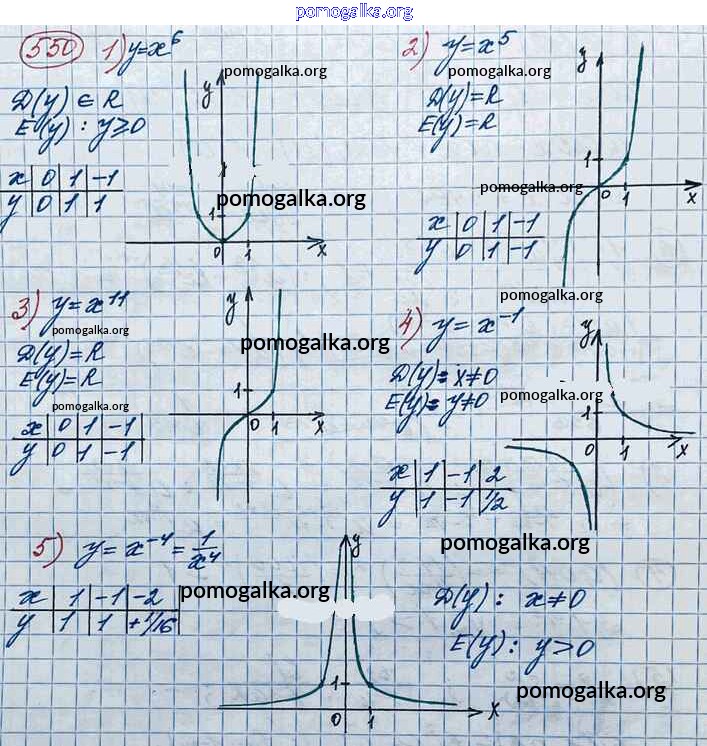 pomogalka.org
550 1) y=x⁶
pomogalka.org
D(y) ∈ R
E(y): y≥0
x | 0 | 1 | -1
y | 0 | 1 | 1
y
1
0 1 x
pomogalka.org
2) y=x⁵
D(y)=R
pomogalka.org
E(y)=R
x | 0 | 1 | -1
y | 0 | 1 | -1
y
1
pomogalka.org
0 1 x
pomogalka.org
3) y=x¹¹
pomogalka.org
D(y)=R
E(y)=R
pomogalka.org
x | 0 | 1 | -1
y | 0 | 1 | -1
y
pomogalka.org
1
0 1 x
4) y=x⁻¹
D(y)= x≠0
E(y)= y≠0
pomogalka.org
x | 1 | -1 | 2
y | 1 | -1 | 1/2
y
1
0 1 x
pomogalka.org
5) y=x⁻⁴=1/x⁴
x | 1 | -1 | -2
y | 1 | 1 | +1/16
pomogalka.org
y
1
0 1 x
D(y): x≠0
E(y): y>0
pomogalka.org